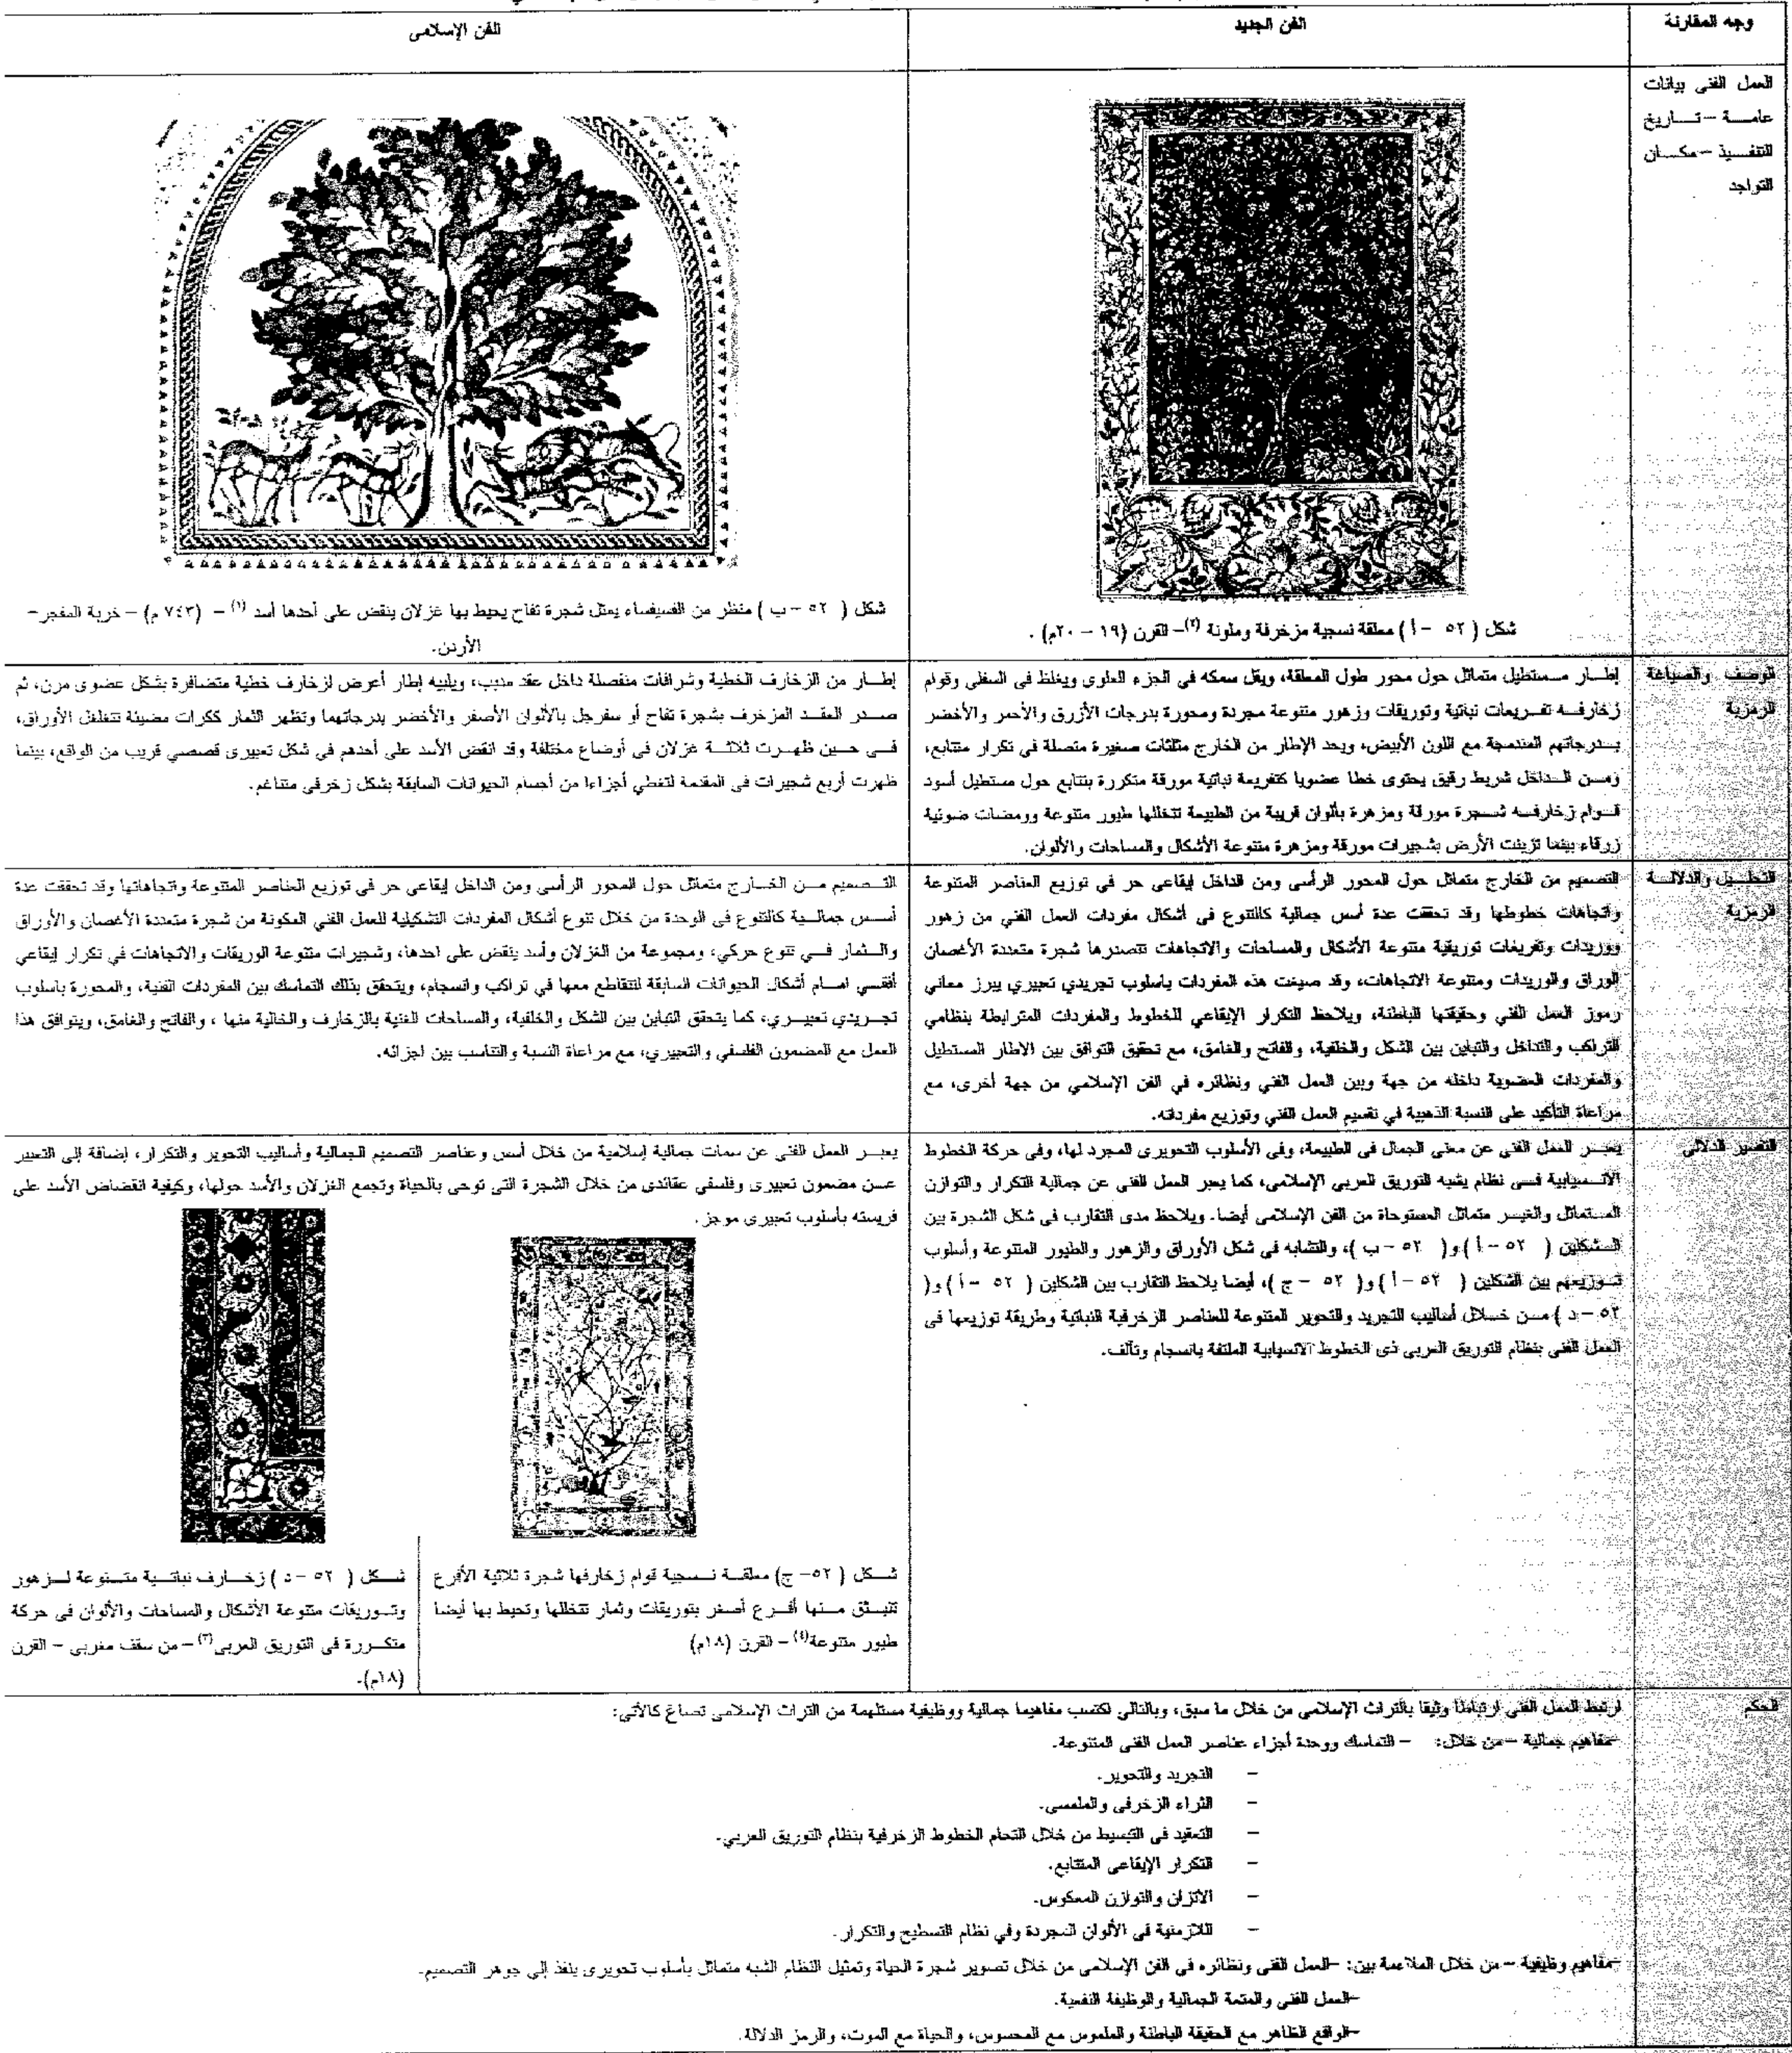 وجه المقارنة
الفن الجديد
الفن الإسلامى
العمل الفنى بيانات
عامة – تاريخ
التنفيذ – مكان
التواجد
شكل ( ٥٢ – أ ) معلقة نسجية مزخرفة وملونة (٢) – القرن (١٩ – ٢٠م) .
شكل ( ٥٢ – ب ) منظر من الفسيفساء يمثل شجرة تفاح يحيط بها غزلان ينقض على أحدها أسد (١) – (٧٤٣ م) – خربة المفجر –
الأردن.
الوصف والصياغة
الرمزية
إطار مستطيل متماثل حول محور طول المعلقة، ويقل سمكه فى الجزء العلوى ويغلظ فى السفلى وقوام
زخارفه تفريعات نباتية وتوريقات وزهور متنوعة مجردة ومحورة بدرجات الأزرق والأحمر والأخضر
بدرجاتهم المندمجة مع اللون الأبيض، ويحد الإطار من الخارج مثلثات صغيرة متصلة فى تكرار متتابع،
ومن الداخل شريط رقيق يحتوى خطا عضويا كتفريعة نباتية مورقة متكررة بتتابع حول مستطيل أسود
قوام زخارفه شجرة مورقة ومزهرة بألوان قريبة من الطبيعة تتخللها طيور متنوعة وومضات ضوئية
زرقاء بينما تزينت الأرض بشجيرات مورقة ومزهرة متنوعة الأشكال والمساحات والألوان.
إطار من الزخارف الخطية وشرافات منفصلة داخل عقد مدبب، ويليه إطار أعرض لزخارف خطية متضافرة بشكل عضوى مرن، ثم
صدر العقد المزخرف بشجرة تفاح أو سفرجل بالألوان الأصفر والأخضر بدرجاتهما وتظهر الثمار ككرات مضيئة تتغلغل الأوراق،
فى حين ظهرت ثلاثة غزلان فى أوضاع مختلفة وقد انقض الأسد على أحدهم فى شكل تعبيرى قصصي قريب من الواقع، بينما
ظهرت أربع شجيرات فى المقدمة لتغطى أجزاءا من أجسام الحيوانات السابقة بشكل زخرفى متناغم.
التحليل والدلالة
الرمزية
التصميم من الخارج متماثل حول المحور الرأسى ومن الداخل إيقاعي حر في توزيع العناصر المتنوعة
واتجاهات خطوطها وقد تحققت عدة أسس جمالية كالتنوع في أشكال مفردات العمل الفني من زهور
ووريدات وتفريغات توريقية متنوعة الأشكال والمساحات والاتجاهات تتصدرها شجرة متعددة الأغصان
الوراق والوريدات ومتنوعة الاتجاهات، وقد صيغت هذه المفردات باسلوب تجريدي تعبيري يبرز معاني
رموز العمل الفني وحقيقتها الباطنة، ويلاحظ التكرار الإيقاعي للخطوط والمفردات المترابطة بنظامي
التراكب والتداخل والتباين بين الشكل والخلفية، والفاتح والغامق، مع تحقيق التوافق بين الاطار المستطيل
والمفردات العضوية داخله من جهة وبين العمل الفني ونظائره في الفن الإسلامي من جهة أخرى، مع
مراعاة التأكيد على النسبة الذهبية في تقسيم العمل الفني وتوزيع مفرداته.
التصميم من الخارج متماثل حول المحور الرأسى ومن الداخل إيقاعي حر في توزيع العناصر المتنوعة واتجاهاتها وقد تحققت عدة
أسس جمالية كالتنوع في الوحدة من خلال تنوع أشكال المفردات التشكيلية للعمل الفني المكونة من شجرة متعددة الأغصان والأوراق
والثمار في تنوع حركي، ومجموعة من الغزلان وأسد ينقض على احدها، وشجيرات متنوعة الوريقات والاتجاهات في تكرار إيقاعي
أفقي امام أشكال الحيوانات السابقة لتتقاطع معها في تراكب وانسجام، ويتحقق بذلك التماسك بين المفردات الفنية، والمحورة باسلوب
تجريدي تعبيري، كما يتحقق التباين بين الشكل والخلفية، والمساحات الغنية بالزخارف والخالية منها ، والفاتح والغامق، ويتوافق هذا
العمل مع المضمون الفلسفي والتعبيري، مع مراعاة النسبة والتناسب بين اجزائه.
التفسير الدلالى
يعبر العمل الفنى عن معنى الجمال فى الطبيعة، وفى الأسلوب التحويرى المجرد لها، وفى حركة الخطوط
الانسيابية فى نظام يشبه التوريق العربي الإسلامى، كما يعبر العمل الفنى عن جمالية التكرار والتوازن
المتماثل والغير متماثل المستوحاة من الفن الإسلامى أيضا. ويلاحظ مدى التقارب فى شكل الشجرة بين
الشكلين ( ٥٢ – أ ) و( ٥٢ – ب )، والتشابه فى شكل الأوراق والزهور والطيور المتنوعة وأسلوب
توزيعهم بين الشكلين ( ٥٢ – أ ) و( ٥٢ – ج )، أيضا يلاحظ التقارب بين الشكلين ( ٥٢ – أ ) و(
٥٢ – د ) من خلال أساليب التجريد والتحوير المتنوعة للعناصر الزخرفية النباتية وطريقة توزيعها فى
العمل الفنى بنظام التوريق العربى ذى الخطوط الانسيابية الملتفة بانسجام وتآلف.
يعبر العمل الفنى عن سمات جمالية إسلامية من خلال أسس وعناصر التصميم الجمالية وأساليب التحوير والتكرار، إضافة إلى التعبير
عن مضمون تعبيرى وفلسفي عقائدى من خلال الشجرة التى توحى بالحياة وتجمع الغزلان والأسد حولها، وكيفية انقضاض الأسد على
فريسته بأسلوب تعبيرى موجز.
شكل ( ٥٢ – ج) معلقة نسجية قوام زخارفها شجرة ثلاثية الأفرع
تنبثق منها أفرع أصغر بتوريقات وثمار تتخللها وتحيط بها أيضا
طيور متنوعة(٤) – القرن (١٨م)
شكل ( ٥٢ – د ) زخارف نباتية متنوعة لزهور
وتوريقات متنوعة الأشكال والمساحات والألوان فى حركة
متكررة فى التوريق العربى(٣) – من سقف مغربى – القرن
(١٨م).
الحكم
ارتبط العمل الفنى ارتباطا وثيقا بالتراث الإسلامى من خلال ما سبق، وبالتالى اكتسب مفاهيما جمالية ووظيفية مستلهمة من التراث الإسلامى تصاغ كالآتى:
–مفاهيم جمالية – من خلال: – التماسك ووحدة أجزاء عناصر العمل الفنى المتنوعة.
– التجريد والتحوير.
– الثراء الزخرفى والملمسى.
– التعقيد فى التبسيط من خلال التحام الخطوط الزخرفية بنظام التوريق العربي.
– التكرار الإيقاعى المتتابع.
– الاتزان والتوازن المعكوس.
– اللازمنية فى الألوان المجردة وفي نظام التسطيح والتكرار.
–مفاهيم وظيفية – من خلال الملاءمة بين: –العمل الفنى ونظائره فى الفن الإسلامى من خلال تصوير شجرة الحياة وتمثيل النظام الشبه متماثل بأسلوب تحويرى ينفذ إلى جوهر التصميم.
–العمل الفنى والمتعة الجمالية والوظيفة النفسية.
–الواقع الظاهر مع الحقيقة الباطنة والملموس مع المحسوس، والحياة مع الموت، والرمز الدلالة.